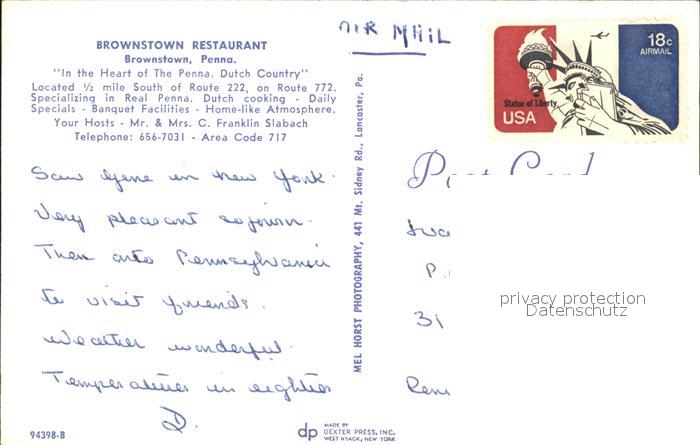 AIR MAIL
BROWNSTOWN RESTAURANT
Brownstown, Penna.
"In the Heart of The Penna. Dutch Country"
Located ½ mile South of Route 222, on Route 772.
Specializing in Real Penna. Dutch cooking - Daily
Specials - Banquet Facilities - Home-like Atmosphere.
Your Hosts - Mr. & Mrs. C. Franklin Slabach
Telephone: 656-7031 - Area Code 717
Saw Gene in New York.
Very pleasant sojourn.
Then onto Pennsylvania
to visit friends.
Weather wonderful.
Temperatures in eighties
D.
94398-B
MEL HORST PHOTOGRAPHY, 441 Mt. Sidney Rd., Lancaster, Pa.
dp
MADE BY
DEXTER PRESS, INC.
WEST NYACK, NEW YORK
18c
AIRMAIL
Statue of Liberty
USA
Post Card
P.
31
privacy protection
Datenschutz